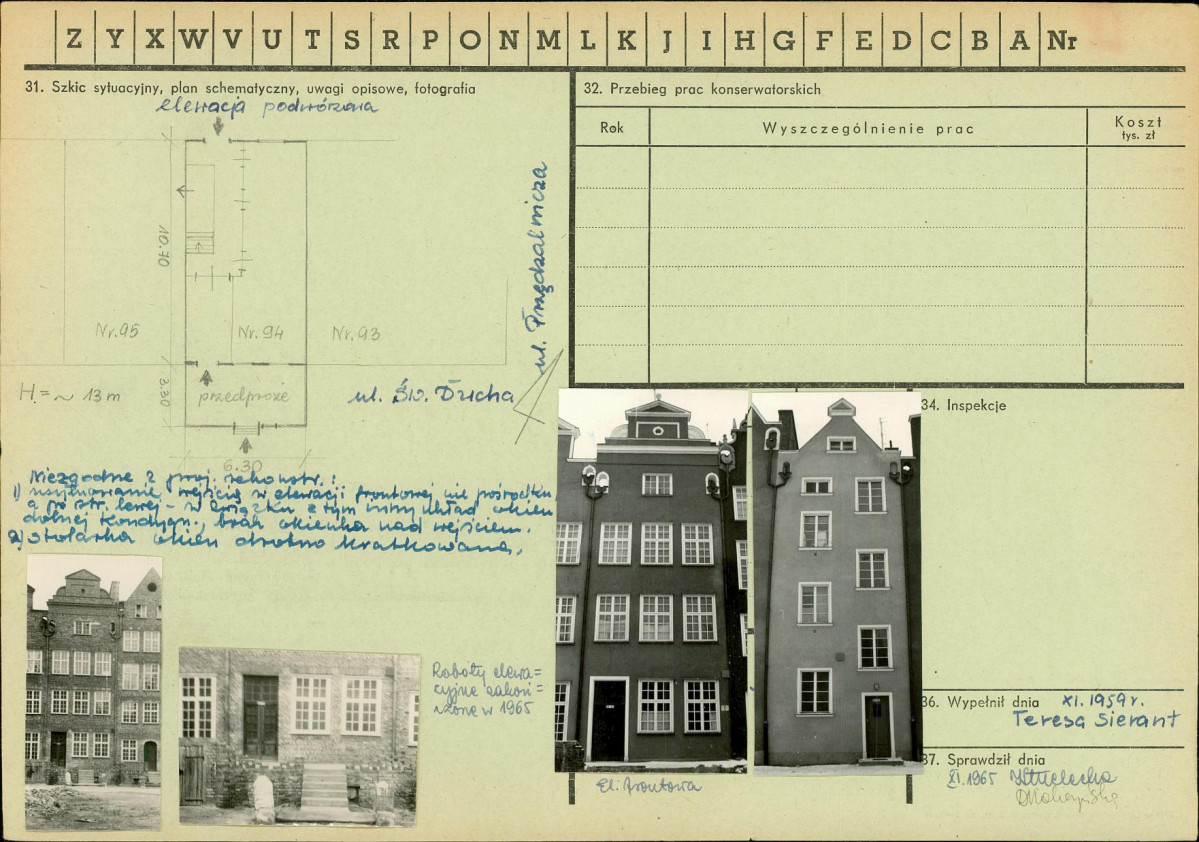 Z Y X W V U T S R P O N M L K J I H G F E D C B A Nr
31. Szkic sytuacyjny, plan schematyczny, uwagi opisowe, fotografia
elewacja podwórzowa
10.70
Nr. 95
Nr. 94
Nr. 93
H = ~ 13 m
3.30
przedproże
6.30
ul. Św. Ducha
ul. Przędzalnicza
Niezgodne z proj. rekonstr.:
1) usytuowanie wejścia w elewacji frontowej nie pośrodku,
a po str. lewej - w związku z tym inny układ okien
dolnej kondygn., brak okienka nad wejściem.
2) stolarka okien drobno kratkowana.
Roboty elewa=
cyjne zakoń=
czone w 1965
32. Przebieg prac konserwatorskich
Rok
Wyszczególnienie prac
Koszt
tys. zł
El. frontowa
34. Inspekcje
36. Wypełnił dnia XI. 1959 r.
Teresa Sierant
37. Sprawdził dnia
XI. 1965